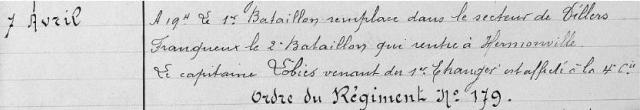 7 Avril
A 19h le 1er Bataillon remplace dans le secteur de Villers
Franqueux le 2e Bataillon qui rentre à Hermonville
Le capitaine Tobies venant du 1er Etranger est affecté à la 4e Cie
Ordre du Régiment No 179.